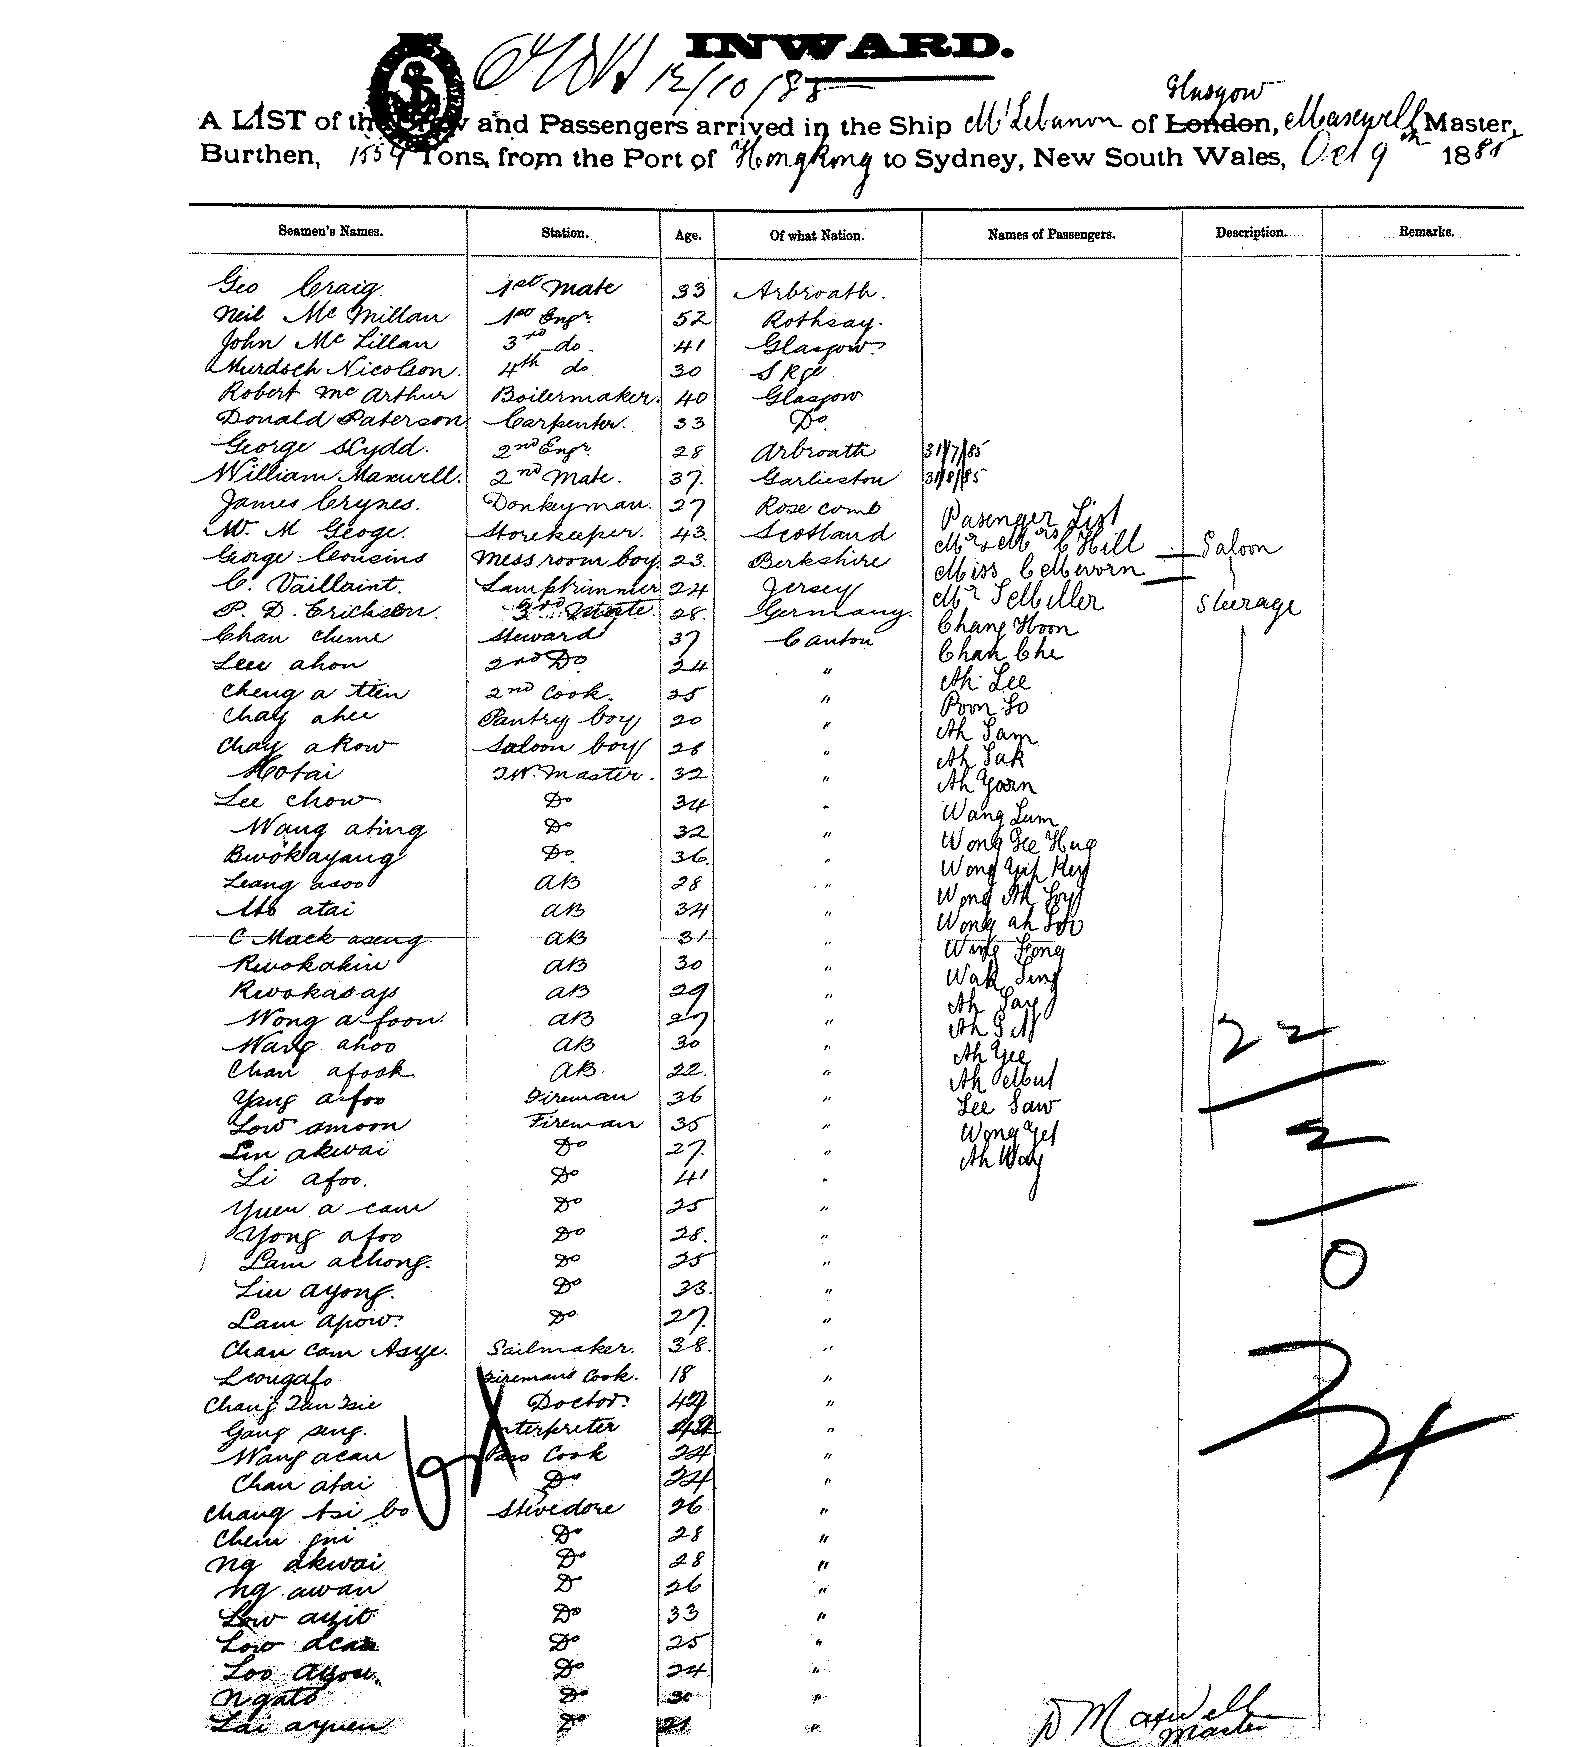 INWARD.
12/10/85
Glasgow
A LIST of the Crew and Passengers arrived in the Ship Mt Lebanon of London, Maxwell Master,
Burthen, 1554 Tons, from the Port of Hongkong to Sydney, New South Wales, Oct 9th 1885
Seamen's Names. Station. Age. Of what Nation. Names of Passengers. Description. Remarks.
Geo Craig. 1st Mate 33 Arbroath.
Neil McMillan 1st Engr. 52 Rothsay.
John McLillan 3rd do. 41 Glasgow.
Murdoch Nicolson. 4th do 30 Skye
Robert McArthur Boilermaker. 40 Glasgow
Donald Paterson Carpenter. 33 Do
George Kydd. 2nd Engr. 28 Arbroath 31/7/85
William Maxwell. 2nd Mate. 37. Garlieston 31/8/85
James Crynes. Donkeyman. 27 Rosecomb Pasenger List
W. M Geoge. Storekeeper. 43. Scotland Mr & Mrs C Hill Saloon
George Cousins Messroom boy 23. Berkshire Miss
C. Vaillaint. Lamptrimmer 24 Jersey Mr Steerage
P. D. Erichsen. 3rd Mate. 28. Germany. Chang Hoon
Chan cheme Steward 37 Canton Chan Che
Lee ahon 2nd Do 24 " Ah Lee
Cheng a tten 2nd Cook. 25 " Poon So
Chay ahee Pantry boy 20 " Ah Sam
Chay akow Saloon boy 28 " Ah Sak
Hotai 32 " Ah Yoon
Lee chow Do 34 " Wang Lum
Wang ating Do 32 " Wong Gee Hug
Bwokayang Do 36. " Wong Yip Key
Leang asoo AB 28 " Wong Ah Loy
Mo atai AB 34 " Wong ah Loi
C Mack aseng AB 31 " Wing Fong
Kwokakin AB 30 " Wak Sing
Kwokasap AB 29 " Ah Say
Wong a foon. AB 27 " Ah 22
Wang ahoo AB 30 " Ah Yee
Chan afook AB 22. " Ah
Yang afoo Fireman 36 " Lee Saw
Low amoon Fireman 35 " Wong Yet 2
Lin akwai Do 27. " Ah Way
Li afoo. Do 41 "
Yuen a cam Do 25 "
Yong afoo Do 28. "
Lam achong. Do 25 " 0
Liu ayong. Do 33. "
Lam apow. Do 27. "
Chan Cam Asye. Sailmaker. 38. "
Leongafo Fireman's Cook. 18 " 24
Chang Tan Tsie Doctor. 49 "
Gang seng. Interpreter "
Wang acan Pass Cook 24 "
Chan atai Do 24 "
Chang tsi bo Stevedore 26 "
Chem Do 28 "
Ng akwai Do 28 "
Ng awan D 26 "
Low ayit Do 33 "
Low acan Do 25 "
Loo ayou. Do 24 "
Ngato Do 30 "
Lai ayuen Do 21 "
D Maxwell
Master